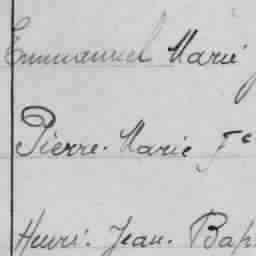 Emmanuel Marie
Pierre. Marie Fc
Henri. Jean. Bap